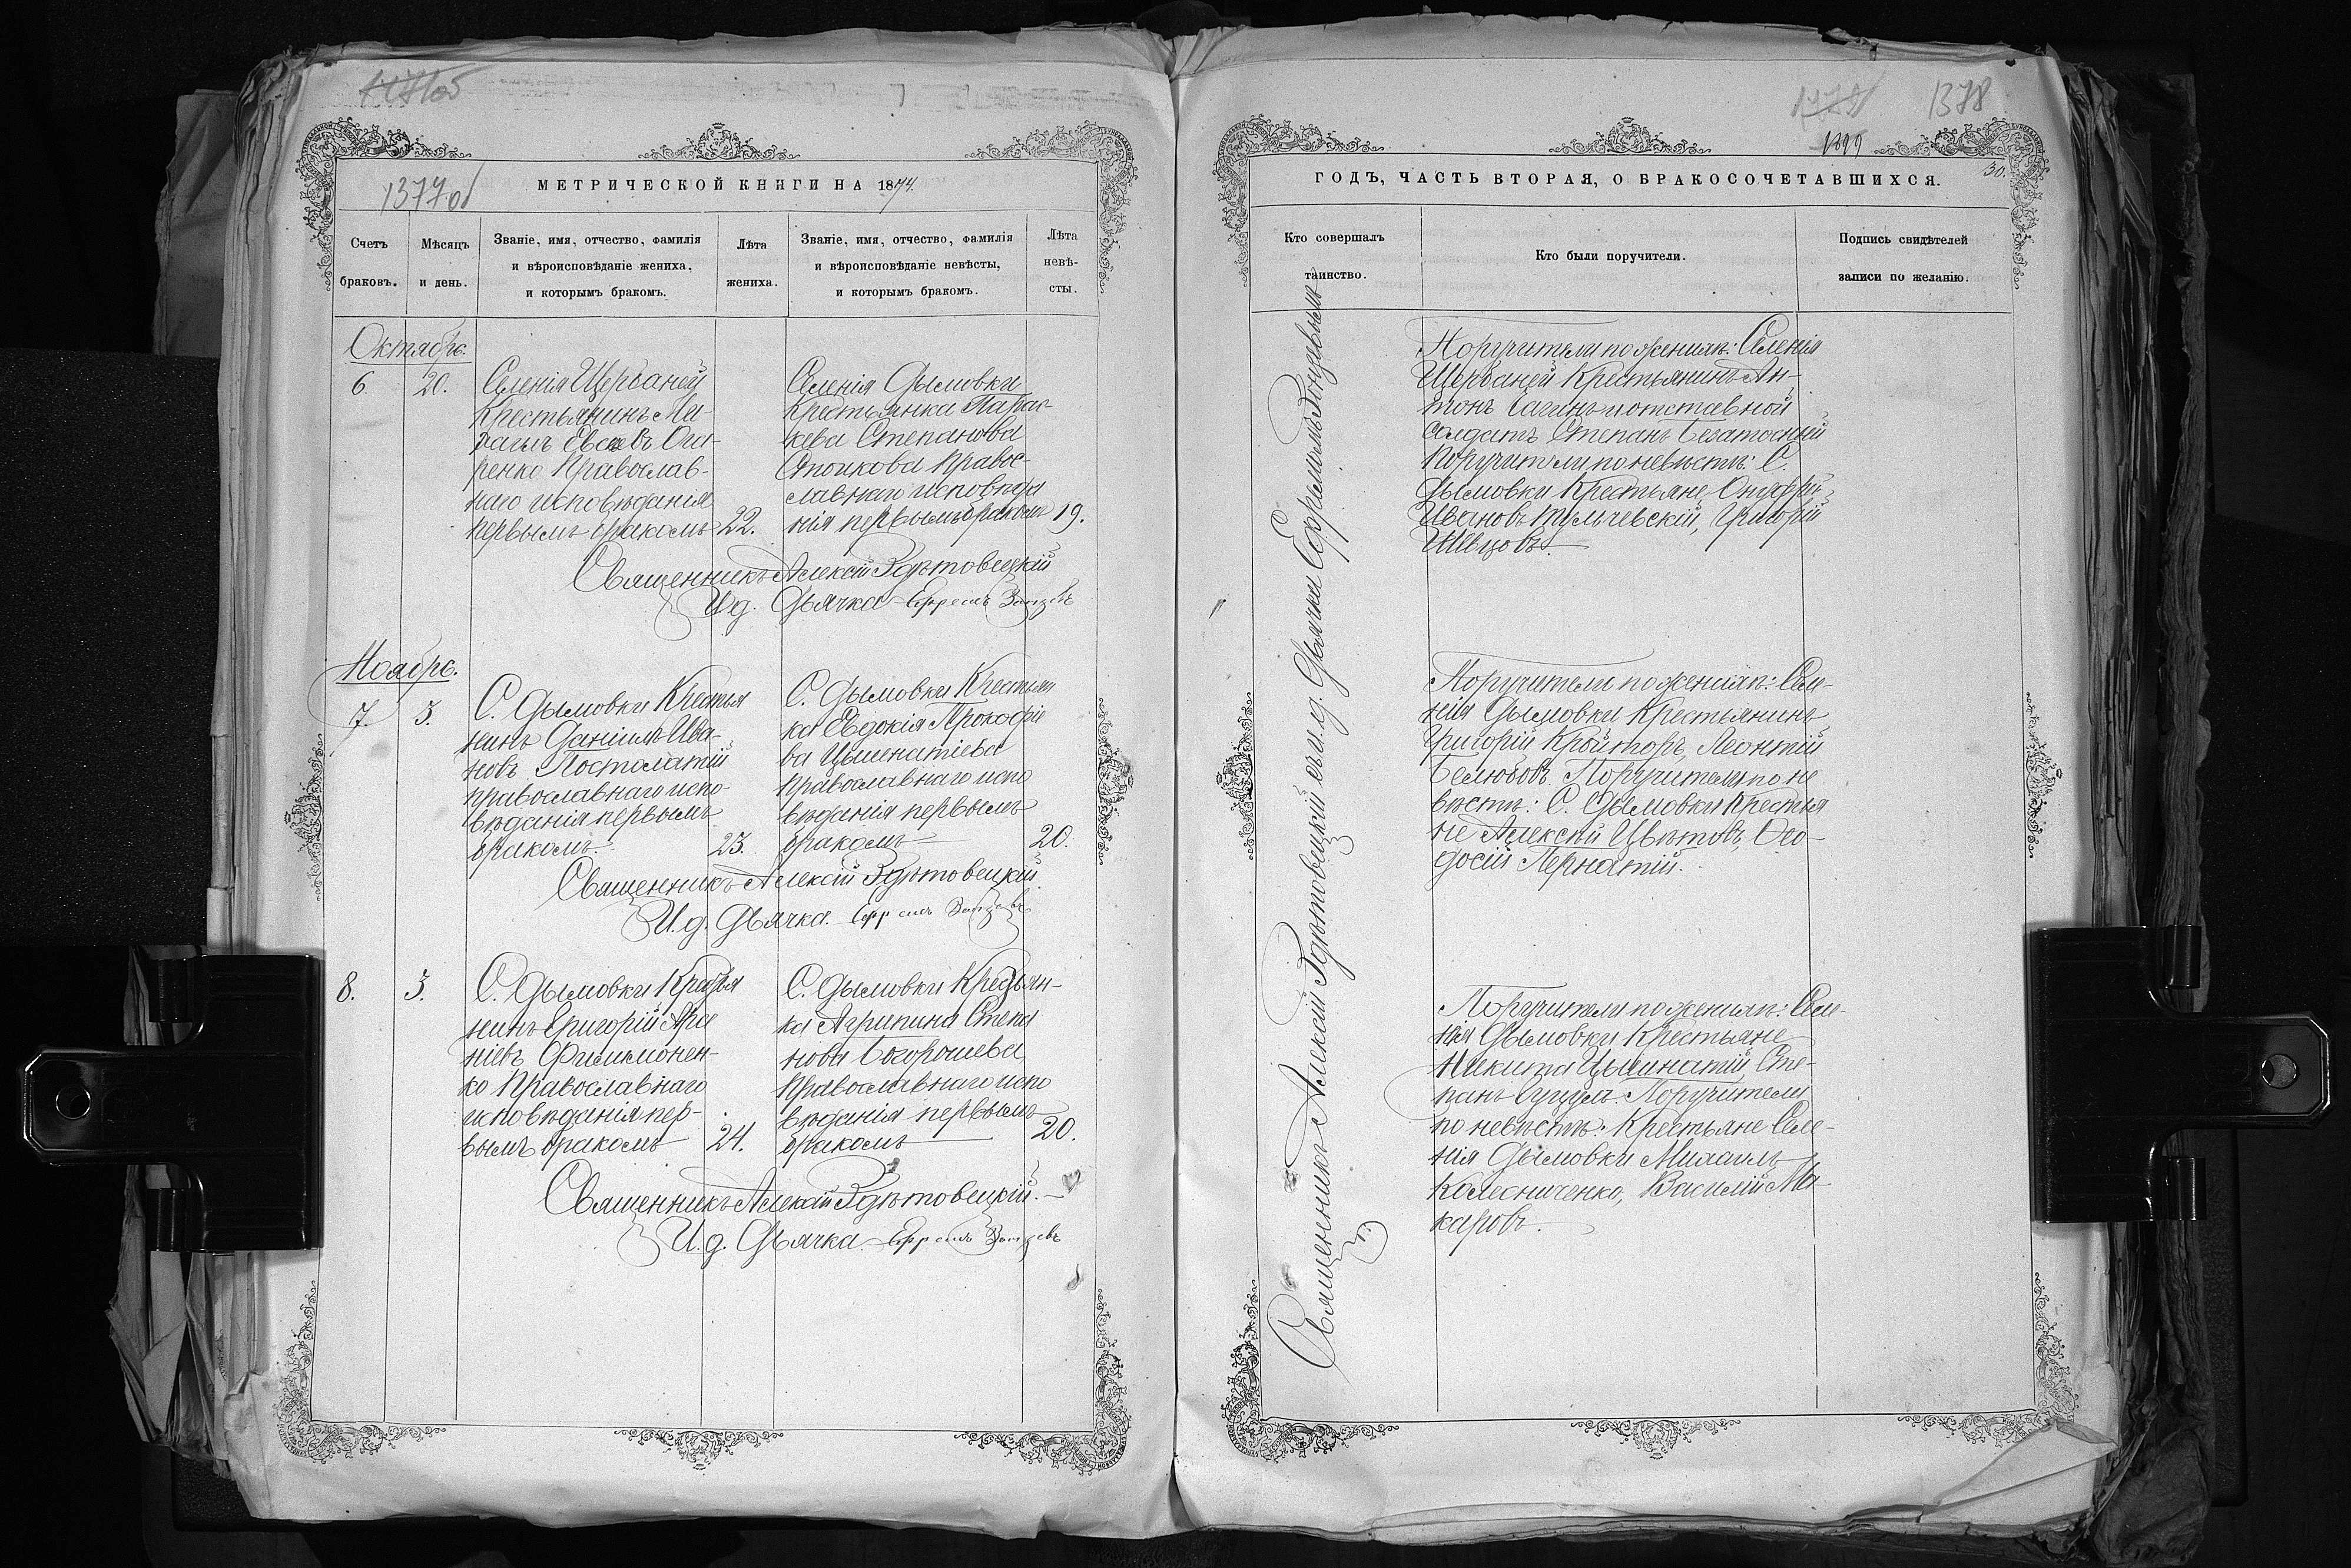 1377об
МЕТРИЧЕСКОЙ КНИГИ НА 1874.
Счетъ
браковъ.
Мѣсяцъ
и день.
Званіе, имя, отчество, фамилія
и вѣроисповѣданіе жениха,
и которымъ бракомъ.
Лѣта
жениха.
Званіе, имя, отчество, фамилія
и вѣроисповѣданіе невѣсты,
и которымъ бракомъ.
Лѣта
невѣ-
сты.
Октябрь.
6. 20.
Селенія Щербаней
Крестьянинъ
Евсеевъ
ренко Православ-
наго исповѣданія
первымъ бракомъ
22.
Селенія Дымовки
Крестьянка Парас-
кева Степанова
Православ-
славнаго исповѣда
нія первымъ бракомъ
19.
Священникъ Алексій Здѣтовецкій
И д. Дьячка Ефремъ
Ноябрь.
7. 3.
С. Дымовки Крестья
нинъ Даніилъ Ива-
новъ Постолатій
православнаго испо-
вѣданія первымъ
бракомъ.
23.
С. Дымовки Крестьян
ка Евдокія Прокофіе
ва Цымпатіева
Православнаго испо
вѣданія первымъ
бракомъ
20.
Священникъ Алексій Здѣтовецкій
И. д. Дьячка. Ефремъ
8. 3.
С. Дымовки Крестья
нинъ Григорій
ніевъ Филимонен-
ко Православнаго
исповѣданія пер-
вымъ бракомъ
24.
С. Дымовки Крестьян-
ка Агрипина Степа
нова
Православнаго испо
вѣданія первымъ
бракомъ
20.
Священникъ Алексій Здѣтовецкій.
И. д. Дьячка. Ефремъ
1378
30.
ГОДЪ, ЧАСТЬ ВТОРАЯ, О БРАКОСОЧЕТАВШИХСЯ.
Кто совершалъ
таинство.
Кто были поручители.
Подпись свидѣтелей
записи по желанію.
Священникъ Алексій Здѣтовецкій съ и. д. Дьячка Ефремомъ
Поручители по женихѣ: Селенія
Щербаней Крестьянинъ Ан-
тонъ и отставной
солдатъ Степанъ
Поручители по невѣстѣ: С.
Дымовки Крестьяне, Онуфрій
Ивановъ Тульчевскій, Григорій
Швцовъ.
Поручители по женихѣ: Селе-
нія Дымовки Крестьянинъ
Григорій Кройторъ, Леонтій
Поручители по не
вѣстѣ: С. Дымовки Крестья
не Алексѣй Цвѣтовъ, Ѳео-
досій Пернатій.
Поручители по женихѣ: Селе-
нія Дымовки Крестьяне
Никита Степ-
панъ Гуцул. Поручители
по невѣстѣ: Крестьяне Селе-
нія Дымовки Михаилъ
Колесниченко, Василій Ма-
каровъ.